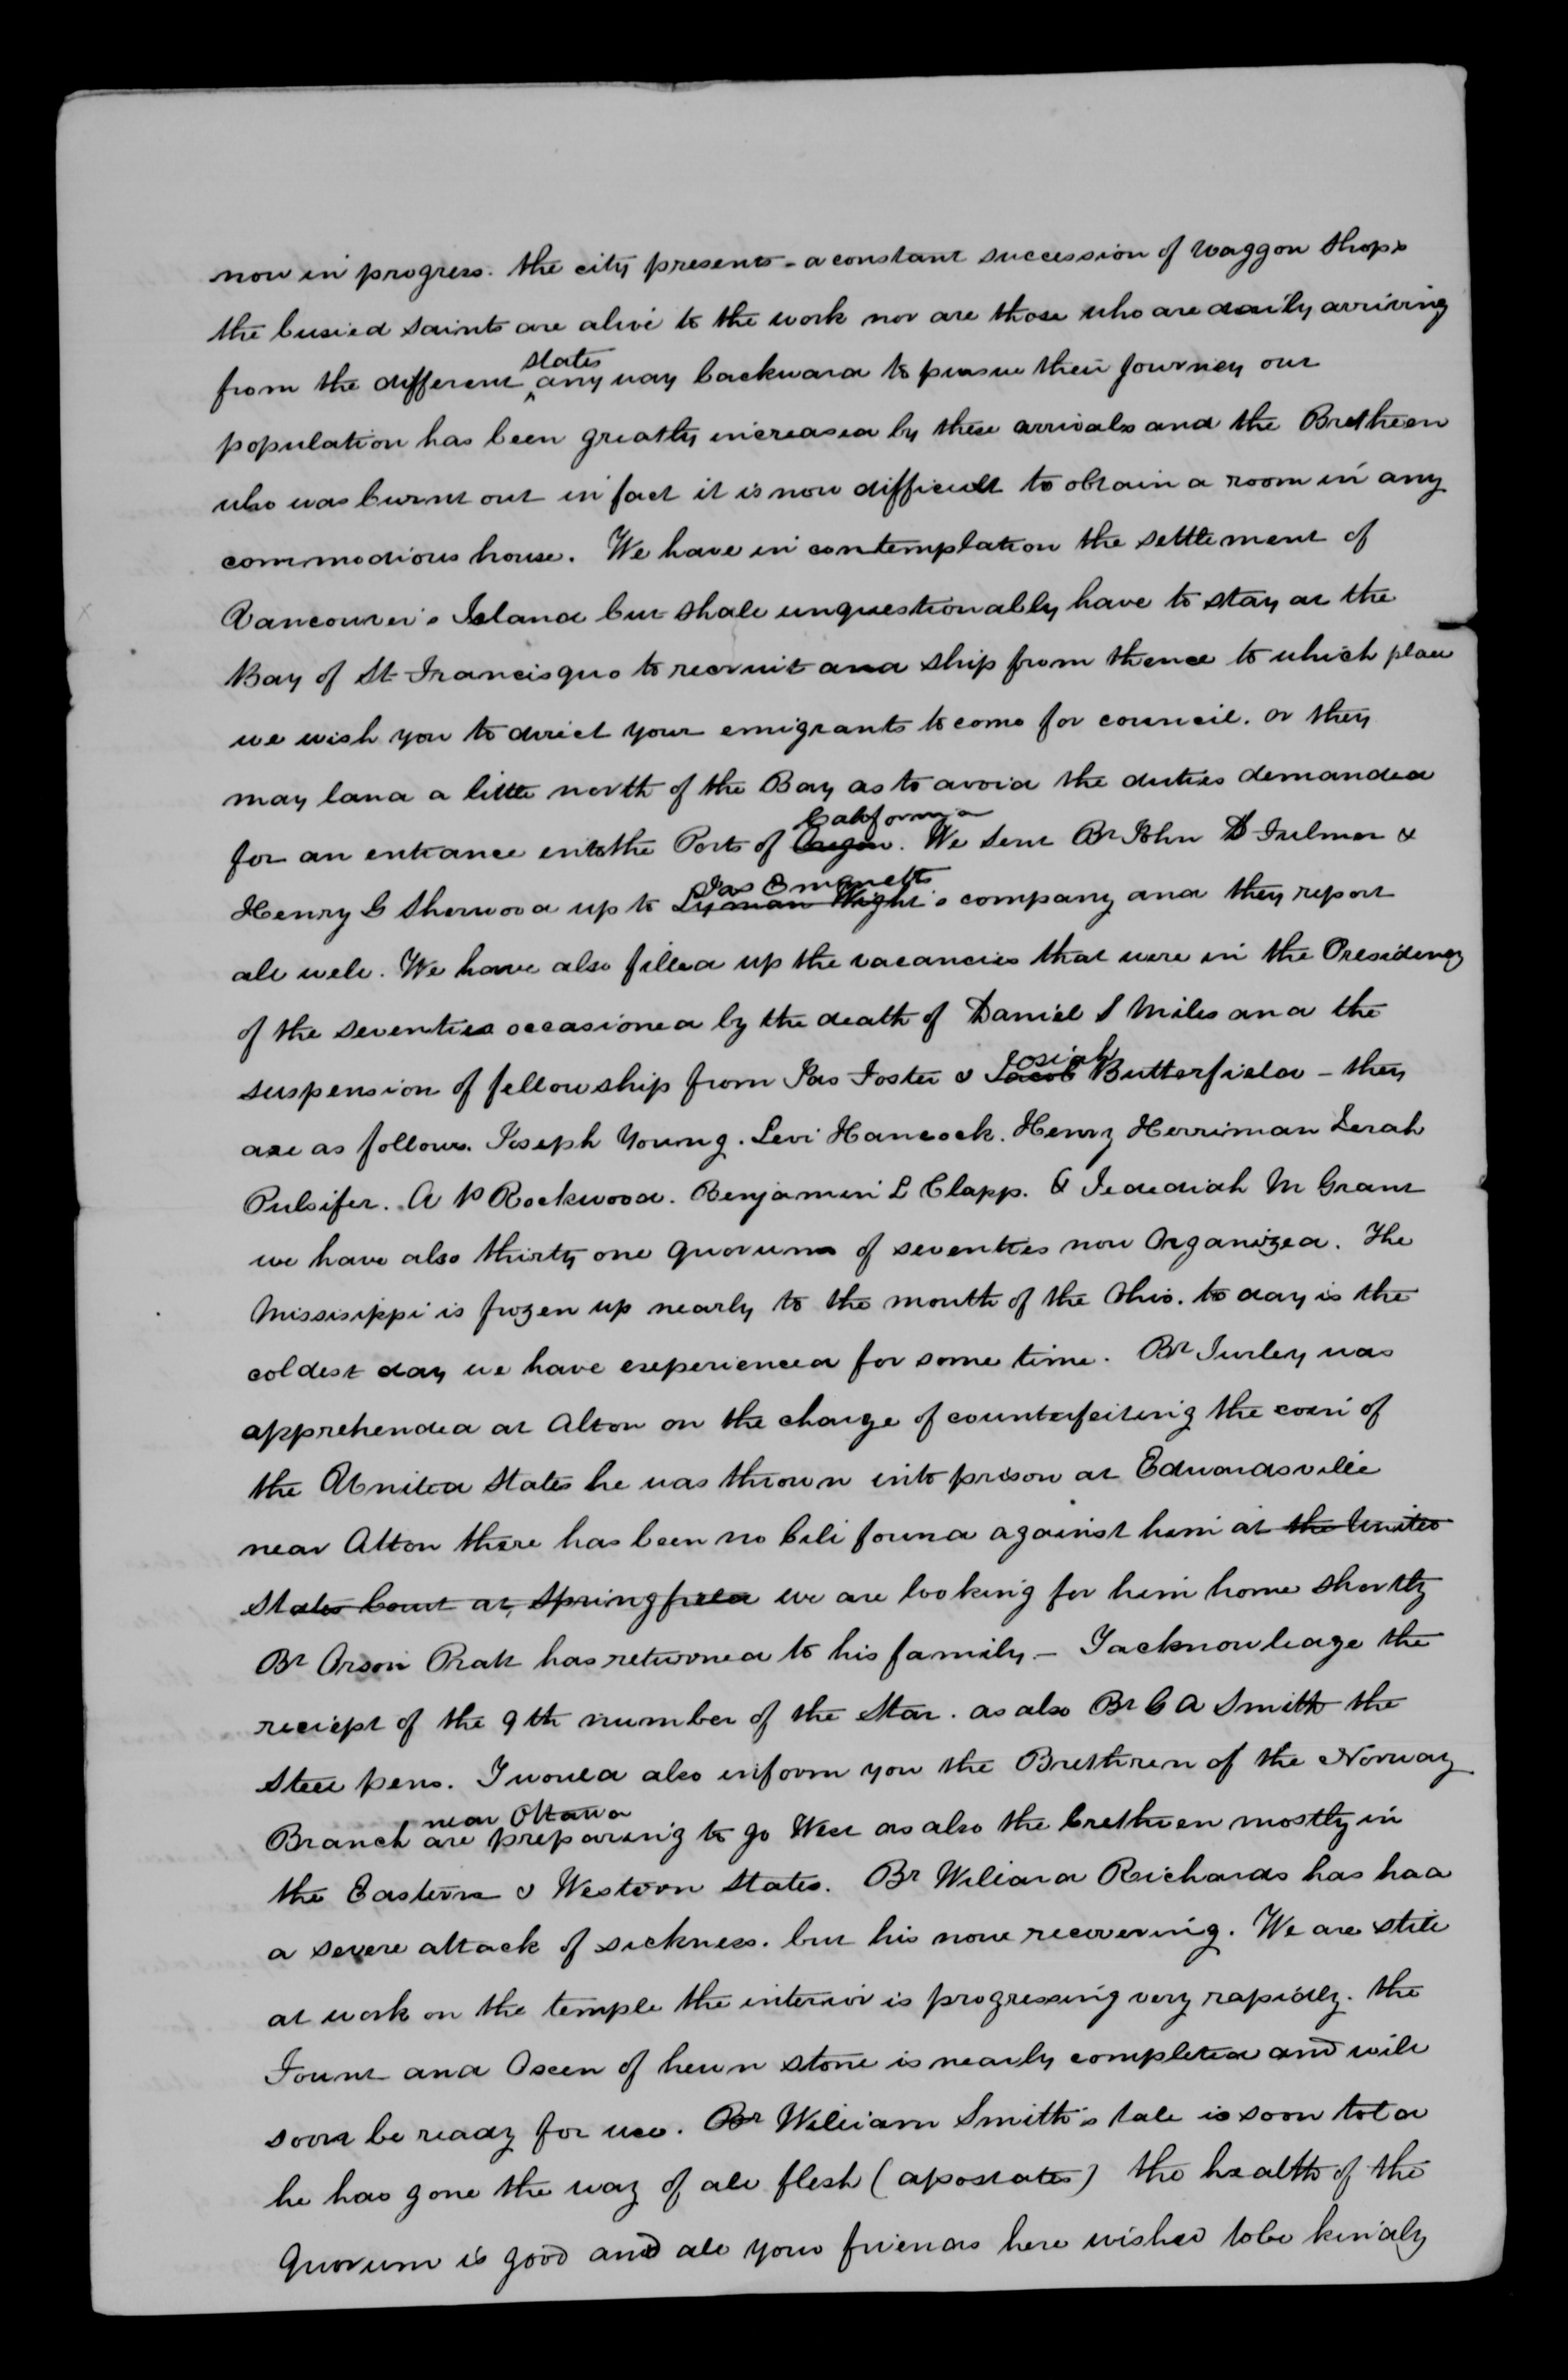 now in progress. the city presents - a constant succession of waggon shops
the busied saints are alive to the work nor are those who are daily arriving
from the different states any way backward to pursue their journey our
population has been greatly increased by these arrivals and the Bretheren
who was burnt out in fact it is now difficult to obtain a room in any
commodious house. We have in contemplation the settlement of
Vancouver's Island but shall unquestionably have to stay at the
Bay of St Francisquo to recruit and ship from thence to which place
we wish you to direct your emigrants to come for council. or they
may land a little north of the Bay as to avoid the duties demanded
for an entrance into the Ports of Oregon California. We sent Br John S Fulmer &
Henry G Sherwood up to Lyman Wight Jas Emmetts's company and they report
all well. We have also filled up the vacancies that were in the Presidency
of the seventies occasioned by the death of Daniel S Miles and the
suspension of fellowship from Jas Foster & Jacob Josiah Butterfield - they
are as follows. Joseph Young. Levi Hancock. Henry Herriman Zerah
Pulsifer. A P Rockwood. Benjamin L Clapp. & Jedediah M Grant
we have also thirty one quorums of seventies now Organized. The
Missisippi is frozen up nearly to the mouth of the Ohio. to day is the
coldest day we have experienced for some time. Br Turley was
apprehended at Alton on the charge of counterfeiting the coin of
the United States he was thrown into prison at Edwardsville
near Alton there has been no bill found against him at the United
States Court at Springfield we are looking for him home shortly
Br Orson Pratt has returned to his family - I acknowledge the
reciept of the 9th number of the Star. as also Br G A Smith the
steel pens. I would also inform you the Brethren of the Norway
Branch near Ottawa are preparing to go West as also the bretheren mostly in
the Eastern & Western States. Br Willard Richards has had
a severe attack of sickness. but his now recovering. We are still
at work on the temple the interior is progressing very rapidly. the
Fount and Oxen of hewn stone is nearly completed and will
soon be ready for use. Br William Smith's tale is soon told
he has gone the way of all flesh (apostates) the health of the
Quorum is good and all your friends here wished to be kindly